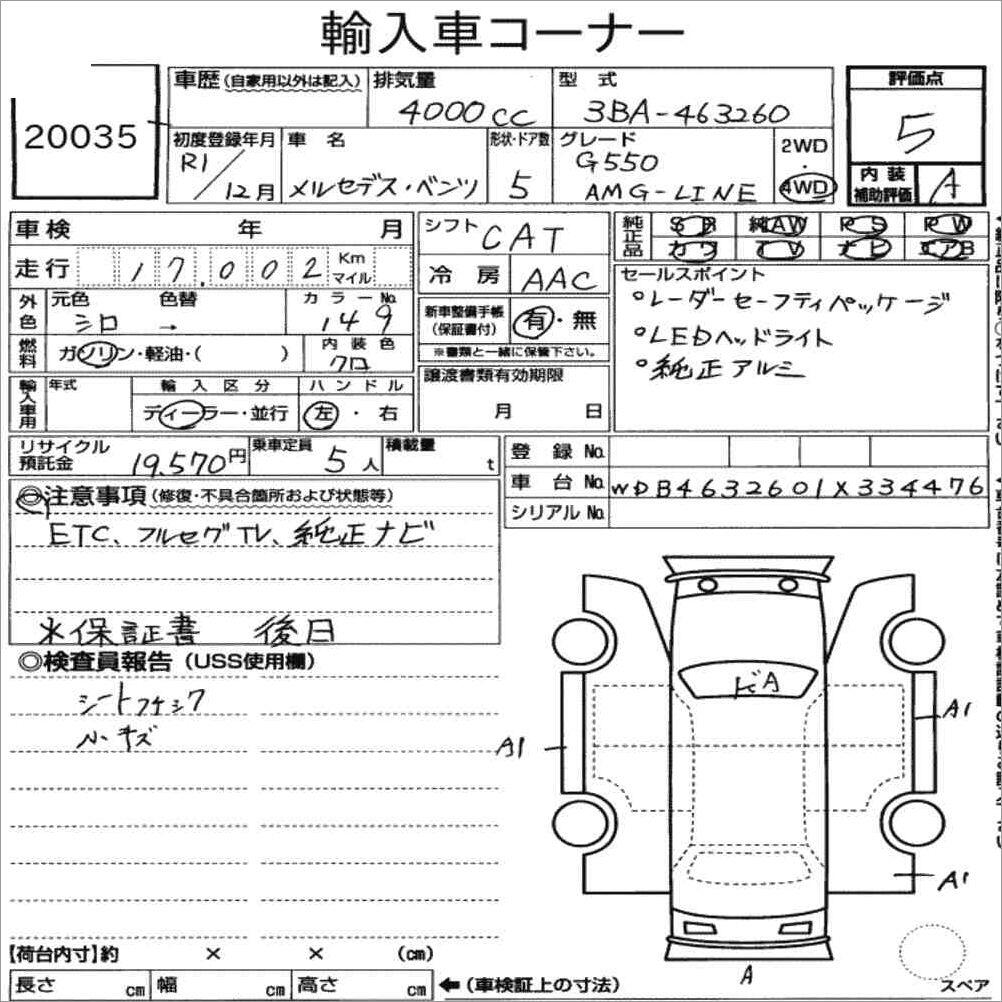 輸入車コーナー
20035
車歴 (自家用以外は記入)
排気量
4000cc
型 式
3BA-463260
評価点
5
初度登録年月
R1/12月
車 名
メルセデス・ベンツ
形状・ドア数
5
グレード
G550
AMG-LINE
2WD
・
4WD
内 装
補助評価
A
車検 年 月
走行 17,002 Km マイル
シフト
CAT
冷 房
AAC
純正品
SR 純AW PS PW
カワ TV ナビ エアB
外色
元色 シロ
色替 →
カラーNo.
149
新車整備手帳
(保証書付)
有・無
※書類と一緒に保管下さい。
セールスポイント
°レーダーセーフティパッケージ
°LEDヘッドライト
°純正アルミ
燃料
ガソリン・軽油・( )
内 装 色
クロ
輸入車用
年式
輸 入 区 分
ディーラー・並行
ハ ン ド ル
左・右
譲渡書類有効期限
月 日
リサイクル
預託金
19,570円
乗車定員
5人
積載量
t
登 録 No.
車 台 No.
WDB4632601X334476
シリアル No.
◎注意事項 (修復・不具合箇所および状態等)
ETC、フルセグTV、純正ナビ
※保証書 後日
◎検査員報告 (USS使用欄)
シートフケシワ
ハ・キズ
ビA
A1
A1
A1
A
【荷台内寸】約 × × (cm)
長さ cm 幅 cm 高さ cm
←(車検証上の寸法)
スペア